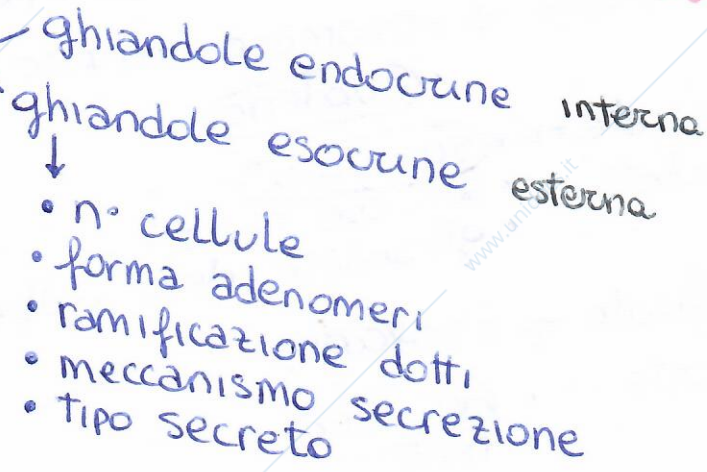 - ghiandole endocrine interna
ghiandole esocrine esterna
↓
• n° cellule
• forma adenomeri
• ramificazione dotti
• meccanismo secrezione
• tipo secreto